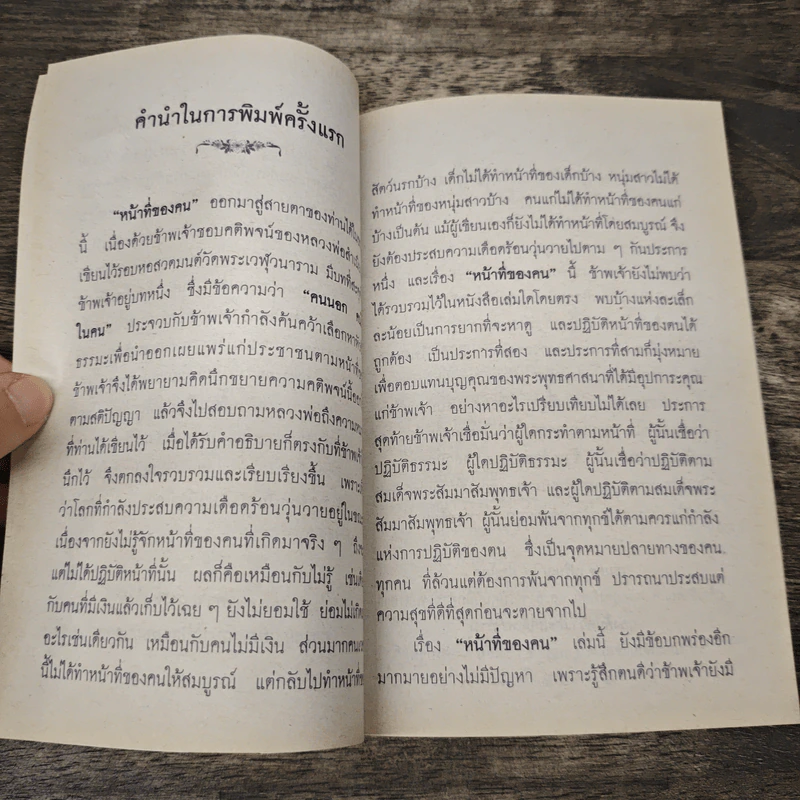 คำนำในการพิมพ์ครั้งแรก
“หน้าที่ของคน” ออกมาสู่สายตาของท่านได้
นี้ เนื่องด้วยข้าพเจ้าชอบคติพจน์ของหลวงพ่อ
เขียนไว้รอบหอสวดมนต์วัดพระเวฬุวนาราม มีบทที่
ข้าพเจ้าอยู่บทหนึ่ง ซึ่งมีข้อความว่า “คนนอก
ในคน” ประจวบกับข้าพเจ้ากำลังค้นคว้าเลือกหา
ธรรมะเพื่อนำออกเผยแพร่แก่ประชาชนตามหน้าที่
ข้าพเจ้าจึงได้พยายามคิดนึกขยายความคติพจน์นี้
ตามสติปัญญา แล้วจึงไปสอบถามหลวงพ่อถึงความ
ที่ท่านได้เขียนไว้ เมื่อได้รับคำอธิบายก็ตรงกับที่ข้าพเจ้า
นึกไว้ จึงตกลงใจรวบรวมและเรียบเรียงขึ้น เพราะ
ว่าโลกที่กำลังประสบความเดือดร้อนวุ่นวายอยู่ใน
เนื่องจากยังไม่รู้จักหน้าที่ของคนที่เกิดมาจริง ๆ ถึง
แต่ไม่ได้ปฏิบัติหน้าที่นั้น ผลก็คือเหมือนกับไม่รู้ เช่น
กับคนที่มีเงินแล้วเก็บไว้เฉย ๆ ยังไม่ยอมใช้ ย่อมไม่เกิด
อะไรเช่นเดียวกัน เหมือนกับคนไม่มีเงิน ส่วนมากคน
นี้ไม่ได้ทำหน้าที่ของคนให้สมบูรณ์ แต่กลับไปทำหน้าที่
สัตว์นรกบ้าง เด็กไม่ได้ทำหน้าที่ของเด็กบ้าง หนุ่มสาวไม่ได้
ทำหน้าที่ของหนุ่มสาวบ้าง คนแก่ไม่ได้ทำหน้าที่ของคนแก่
บ้างเป็นต้น แม้ผู้เขียนเองก็ยังไม่ได้ทำหน้าที่โดยสมบูรณ์ จึง
ยังต้องประสบความเดือดร้อนวุ่นวายไปตาม ๆ กันประการ
หนึ่ง และเรื่อง “หน้าที่ของคน” นี้ ข้าพเจ้ายังไม่พบว่า
ได้รวบรวมไว้ในหนังสือเล่มใดโดยตรง พบบ้างแห่งละเล็ก
ละน้อยเป็นการยากที่จะหาดู และปฏิบัติหน้าที่ของคนได้
ถูกต้อง เป็นประการที่สอง และประการที่สามก็มุ่งหมาย
เพื่อตอบแทนบุญคุณของพระพุทธศาสนาที่ได้มีอุปการะคุณ
แก่ข้าพเจ้า อย่างหาอะไรเปรียบเทียบไม่ได้เลย ประการ
สุดท้ายข้าพเจ้าเชื่อมั่นว่าผู้ใดกระทำตามหน้าที่ ผู้นั้นเชื่อว่า
ปฏิบัติธรรมะ ผู้ใดปฏิบัติธรรมะ ผู้นั้นเชื่อว่าปฏิบัติตาม
สมเด็จพระสัมมาสัมพุทธเจ้า และผู้ใดปฏิบัติตามสมเด็จพระ
สัมมาสัมพุทธเจ้า ผู้นั้นย่อมพ้นจากทุกข์ได้ตามควรแก่กำลัง
แห่งการปฏิบัติของตน ซึ่งเป็นจุดหมายปลายทางของคน
ทุกคน ที่ล้วนแต่ต้องการพ้นจากทุกข์ ปรารถนาประสบแต่
ความสุขที่ดีที่สุดก่อนจะตายจากไป
เรื่อง “หน้าที่ของคน” เล่มนี้ ยังมีข้อบกพร่องอีก
มากมายอย่างไม่มีปัญหา เพราะรู้สึกตนดีว่าข้าพเจ้ายังมี